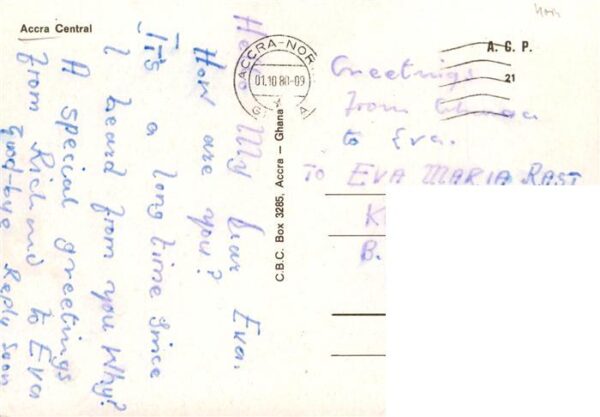 Accra Central
Hello My Dear Eva.
How are you?
It's a long time since
I heard from you Why?
A special greetings
from Richmond to Eva
Good-bye Reply soon
C.B.C. Box 3285, Accra — Ghana
ACCRA-NOR
01.10 80-09
A. G. P.
21
Greetings
from Ghana
to Eva.
To EVA MARIA RAST
K
B.